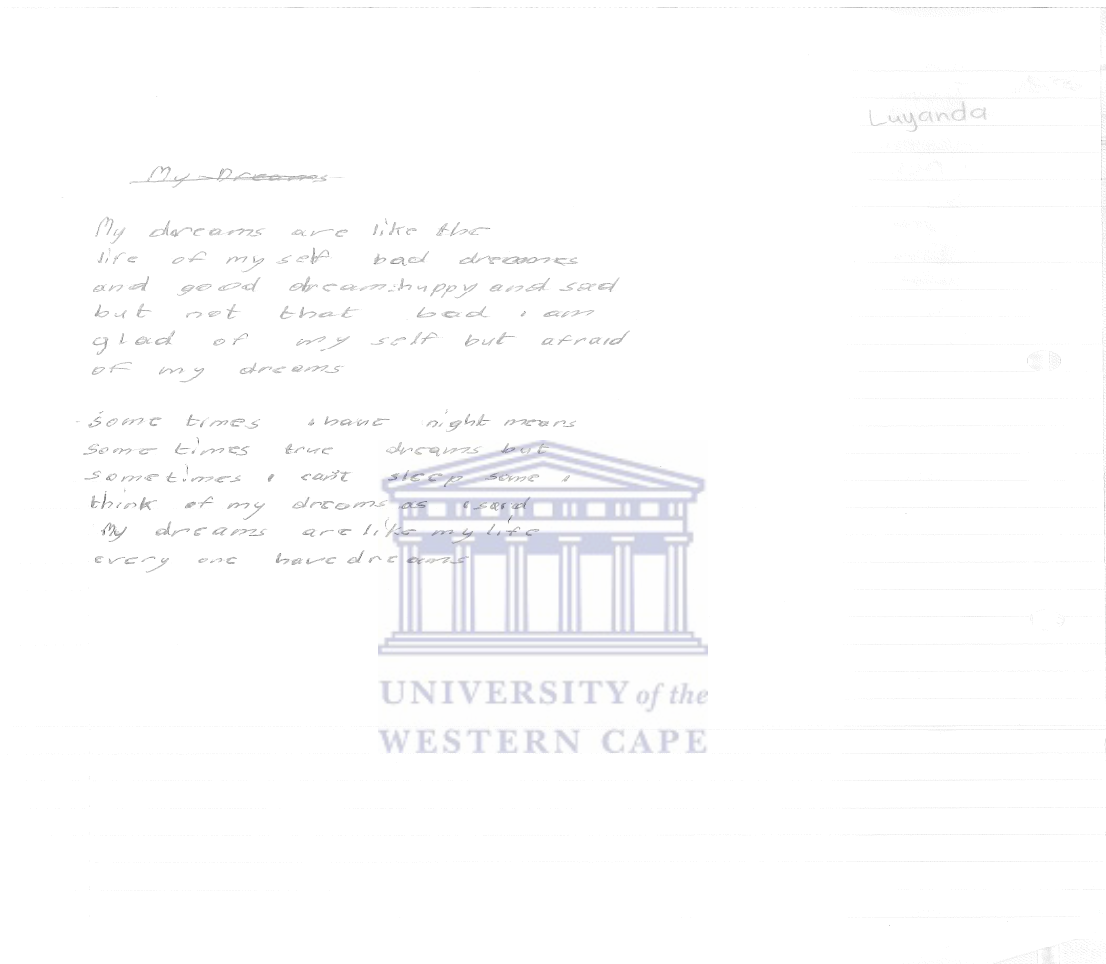 Luyanda
My Dreams
My dreams are like the
life of my self bad dreames
and good dream:huppy and sad
but not that bad i am
glad of my self but afraid
of my dreams
some times i have night mears
some times true dreams but
sometimes i can't sleep some i
think of my dreams as i said
My dreams are like my life
every one have dreams
UNIVERSITY of the
WESTERN CAPE